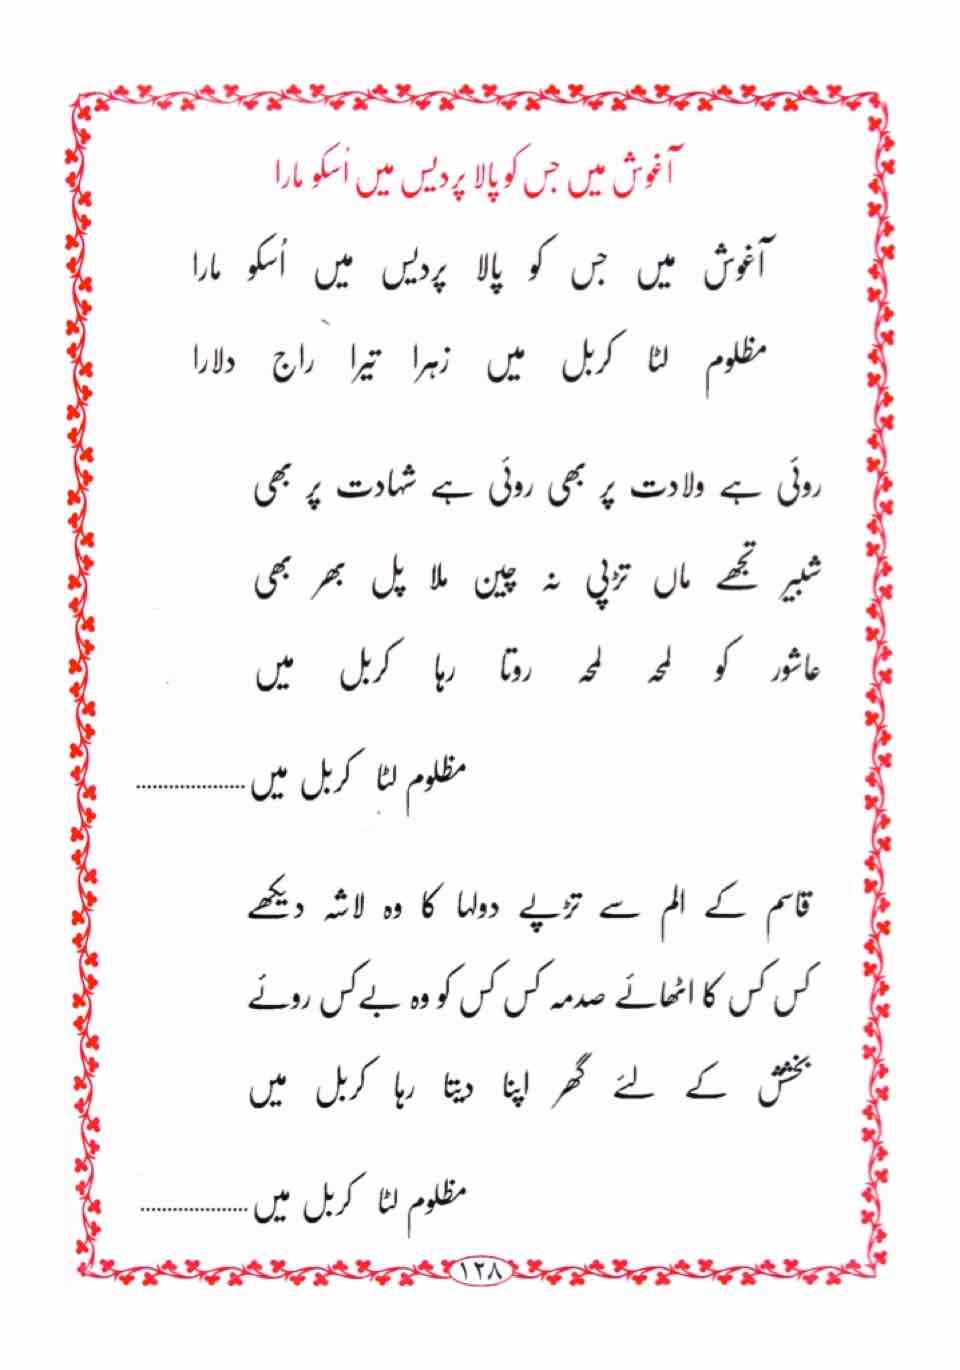 آغوش میں جس کو پالا پردیس میں اُسکو مارا
آغوش میں جس کو پالا پردیس میں اُسکو مارا
مظلوم لٹا کربل میں زہرا تیرا راج دلارا
روئی ہے ولادت پر بھی روئی ہے شہادت پر بھی
شبیر تجھے ماں تڑپی نہ چین ملا پل بھر بھی
عاشور کو لمحہ لمحہ روتا رہا کربل میں
مظلوم لٹا کربل میں ....................
قاسم کے الم سے تڑپے دولہا کا وہ لاشہ دیکھے
کس کس کا اٹھائے صدمہ کس کس کو وہ بےکس روئے
بخشش کے لئے گھر اپنا دیتا رہا کربل میں
مظلوم لٹا کربل میں ....................
۱۲۸